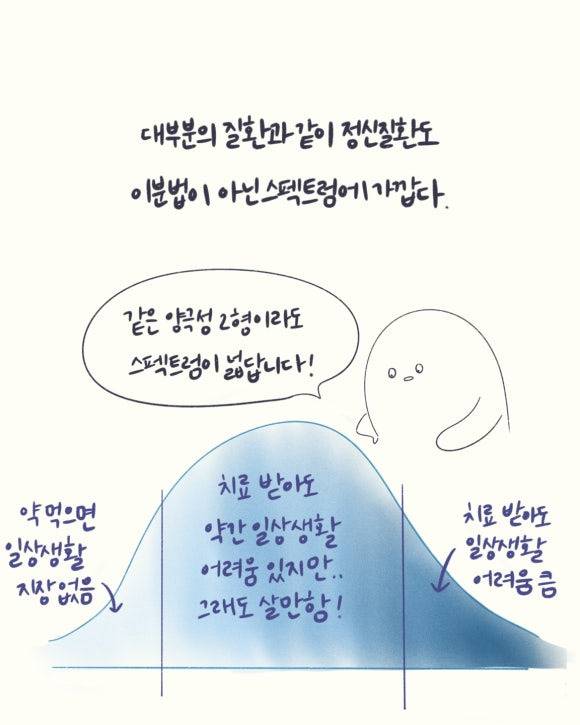 대부분의 질환과 같이 정신질환도
이분법이 아닌 스펙트럼에 가깝다.
같은 양극성 2형이라도
스펙트럼이 넓답니다!
약 먹으면
일상생활
지장 없음
치료 받아도
약간 일상생활
어려움 있지만..
그래도 살만함!
치료 받아도
일상생활
어려움 큼